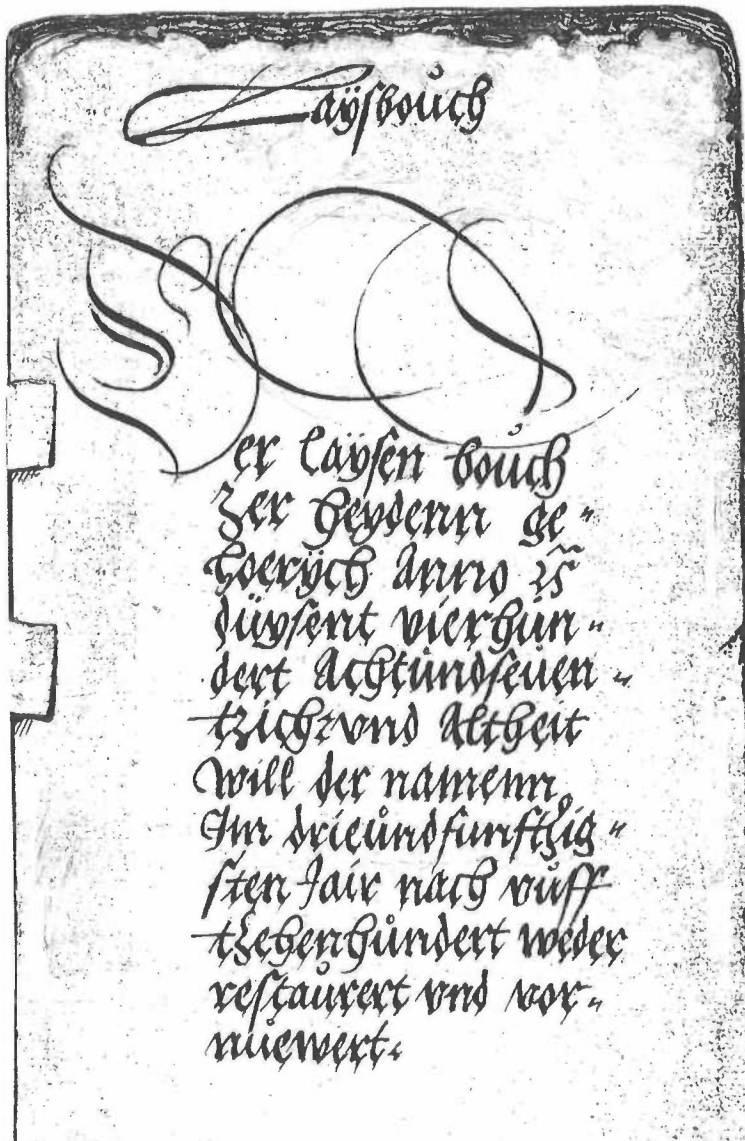 Laÿsboůch
Der Laÿsen boůch
Zer Heydenn ge=
hoerÿch Anno
dúÿsent vierhún=
dert Achtúndseúen=
tzich: vnd Altheit
will der namenn
Im drieůndfunftzig=
sten Jair nach vúff
tzehenhůndert weder
restaůrert vnd vor=
núewert.